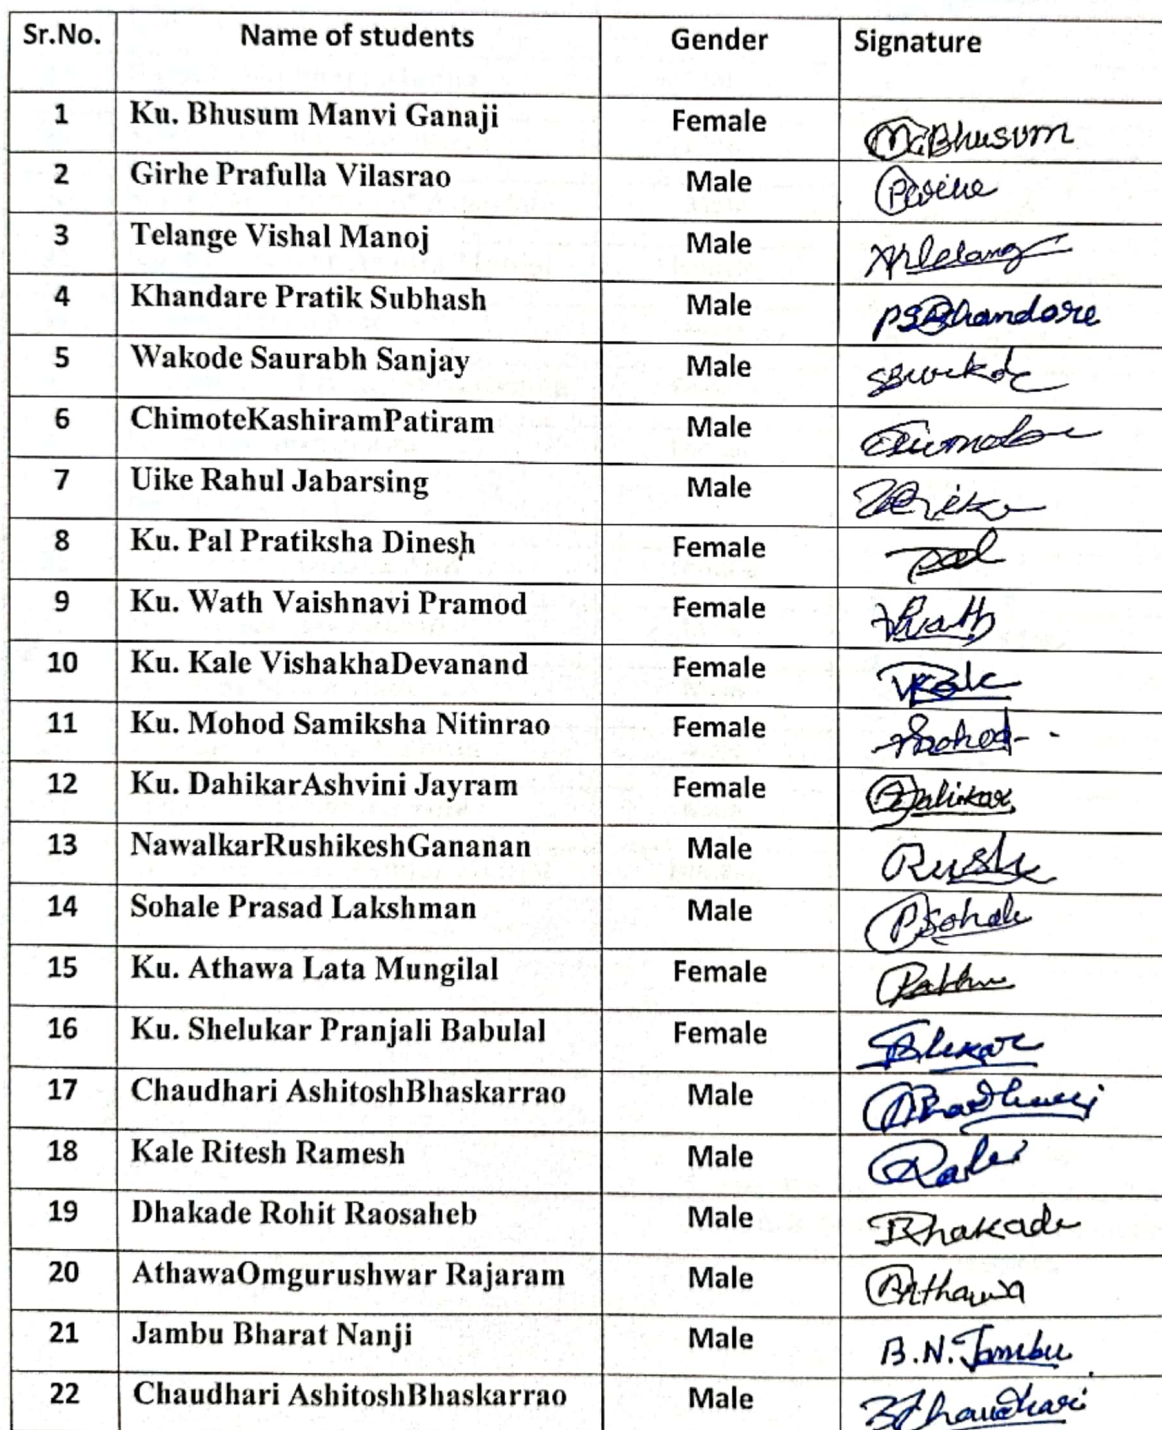 Sr.No. Name of students Gender Signature
1 Ku. Bhusum Manvi Ganaji Female M.Bhusum
2 Girhe Prafulla Vilasrao Male
3 Telange Vishal Manoj Male
4 Khandare Pratik Subhash Male
5 Wakode Saurabh Sanjay Male
6 ChimoteKashiramPatiram Male
7 Uike Rahul Jabarsing Male
8 Ku. Pal Pratiksha Dinesh Female Pal
9 Ku. Wath Vaishnavi Pramod Female
10 Ku. Kale VishakhaDevanand Female
11 Ku. Mohod Samiksha Nitinrao Female
12 Ku. DahikarAshvini Jayram Female
13 NawalkarRushikeshGananan Male
14 Sohale Prasad Lakshman Male PSohale
15 Ku. Athawa Lata Mungilal Female
16 Ku. Shelukar Pranjali Babulal Female
17 Chaudhari AshitoshBhaskarrao Male
18 Kale Ritesh Ramesh Male
19 Dhakade Rohit Raosaheb Male
20 AthawaOmgurushwar Rajaram Male
21 Jambu Bharat Nanji Male B.N.Jambu
22 Chaudhari AshitoshBhaskarrao Male